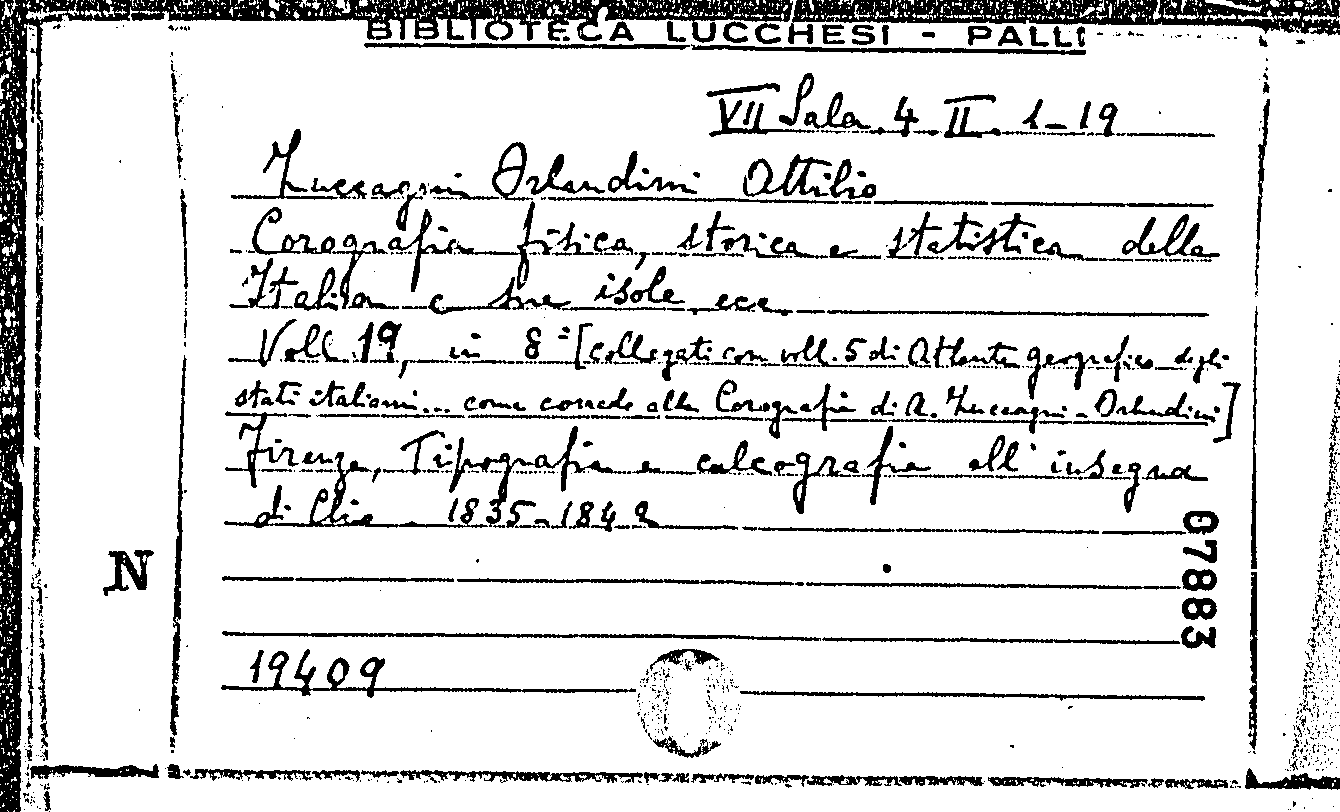 BIBLIOTECA LUCCHESI - PALLI
VII Sala. 4. II. 1-19
Zuccagni Orlandini Attilio
Corografia fisica, storica e statistica della
Italia e sue isole ecc.
Voll 19, in 8° [collegati con voll. 5 di Atlante geografico degli
stati italiani... come corredo alla Corografia di A. Zuccagni-Orlandini]
Firenze, Tipografia e calcografia all'insegna
di Clio 1835-1842
N
07883
19409